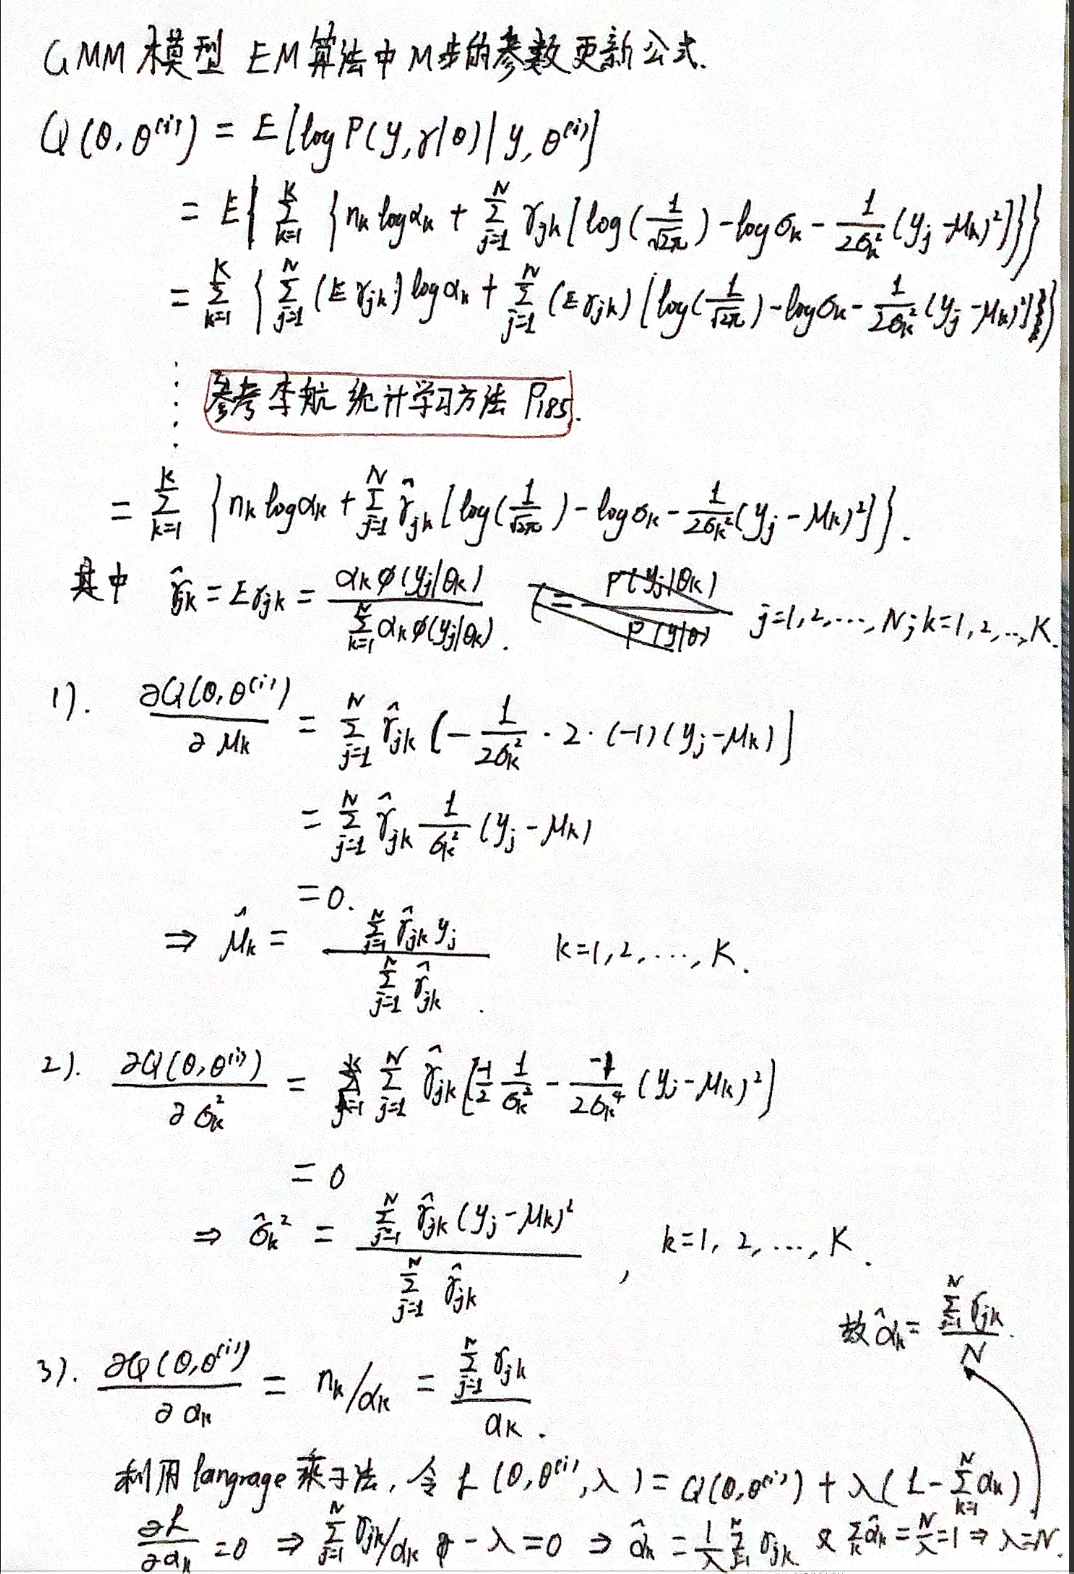 GMM模型 EM算法中M步的参数更新公式.
Q(θ,θ⁽ⁱ⁾) = E[log P(y,γ|θ)|y,θ⁽ⁱ⁾]
= E{ ∑_{k=1}^{K} { n_k log α_k + ∑_{j=1}^{N} γ_{jk} [log(1/√2π) - log σ_k - 1/(2σ_k²) (y_j - μ_k)²]}}
= ∑_{k=1}^{K} { ∑_{j=1}^{N} (E γ_{jk}) log α_k + ∑_{j=1}^{N} (E γ_{jk}) [log(1/√2π) - log σ_k - 1/(2σ_k²) (y_j - μ_k)²]}
⋮ 参考李航 统计学习方法 P185.
= ∑_{k=1}^{K} { n_k log α_k + ∑_{j=1}^{N} γ̂_{jk} [log(1/√2π) - log σ_k - 1/(2σ_k²) (y_j - μ_k)²]}.
其中 γ̂_{jk} = E γ_{jk} = α_k φ(y_j|θ_k) / ∑_{k=1}^{K} α_k φ(y_j|θ_k). j=1,2,…,N; k=1,2,…,K.
1). ∂Q(θ,θ⁽ⁱ⁾)/∂μ_k = ∑_{j=1}^{N} γ̂_{jk} [-1/(2σ_k²) · 2 · (-1)(y_j - μ_k)]
= ∑_{j=1}^{N} γ̂_{jk} 1/σ_k² (y_j - μ_k)
= 0.
⇒ μ̂_k = ∑_{j=1}^{N} γ̂_{jk} y_j / ∑_{j=1}^{N} γ̂_{jk}. k=1,2,…,K.
2). ∂Q(θ,θ⁽ⁱ⁾)/∂σ_k² = ∑_{j=1}^{N} γ̂_{jk} [-1/2 1/σ_k² - -1/(2σ_k⁴) (y_j - μ_k)²]
= 0
⇒ σ̂_k² = ∑_{j=1}^{N} γ̂_{jk} (y_j - μ_k)² / ∑_{j=1}^{N} γ̂_{jk}, k=1,2,…,K.
故 α̂_k = ∑_{j=1}^{N} γ_{jk} / N.
3). ∂Q(θ,θ⁽ⁱ⁾)/∂α_k = n_k/α_k = ∑_{j=1}^{N} γ_{jk} / α_k.
利用 langrage 乘子法, 令 L(θ,θ⁽ⁱ⁾,λ) = Q(θ,θ⁽ⁱ⁾) + λ(1 - ∑_{k=1}^{N} α_k)
∂L/∂α_k = 0 ⇒ ∑_{j=1}^{N} γ_{jk}/α_k - λ = 0 ⇒ α̂_k = 1/λ ∑_{j=1}^{N} γ_{jk} 又 ∑_k α̂_k = N/λ = 1 ⇒ λ=N.